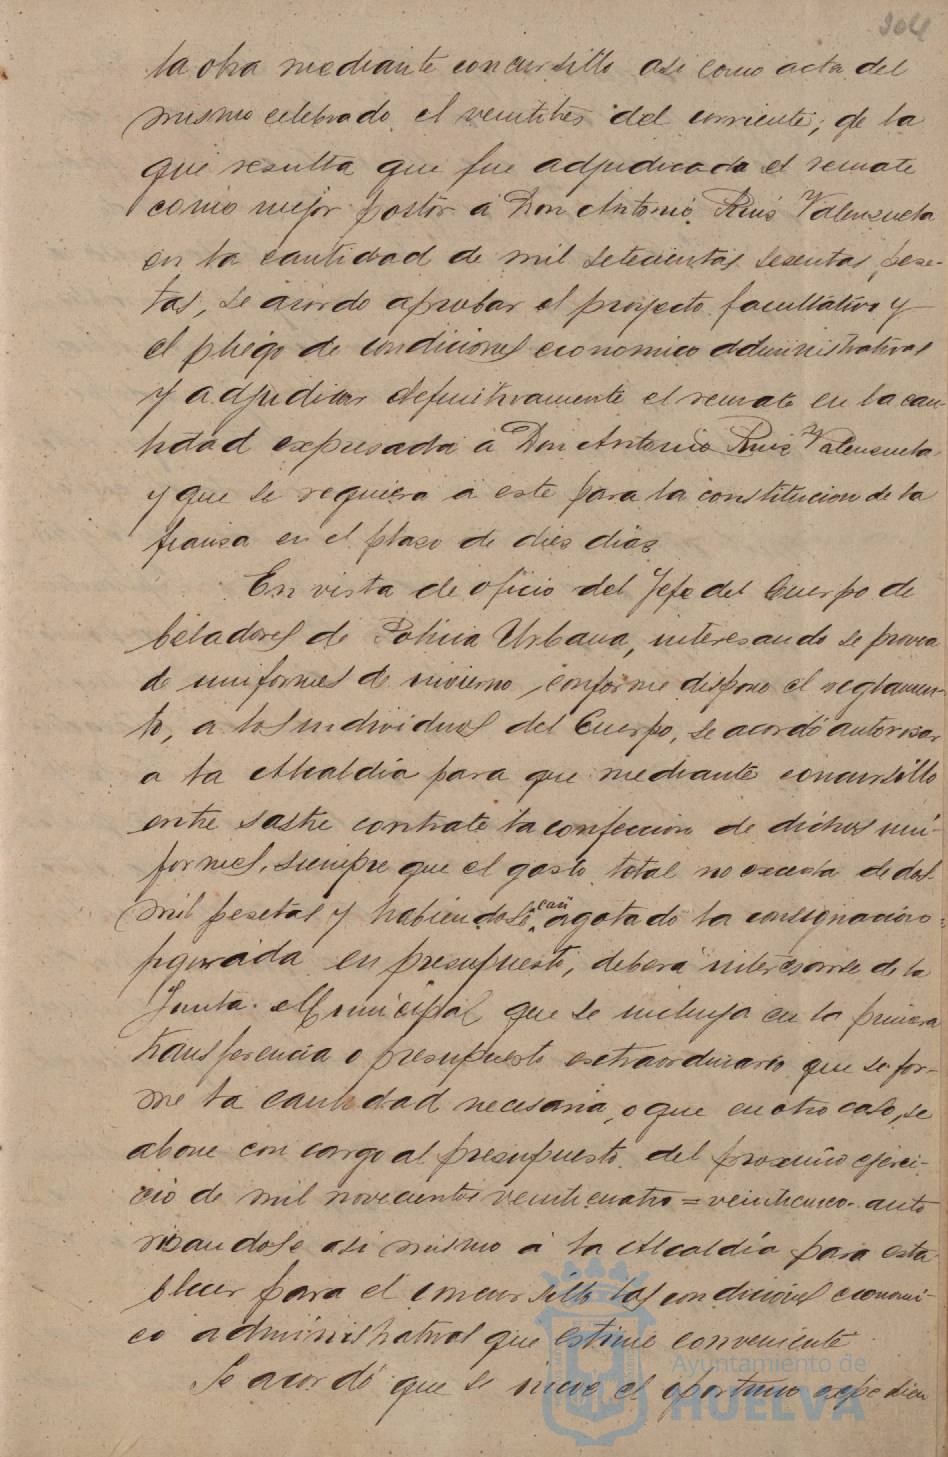 304
la obra mediante concursillo asi como acta del
mismo celebrado el veintitres del corriente; de la
que resulta que fue adjudicada el remate
como mejor postor á Don Antonio Ruis Valenzuela
en la cantidad de mil setecientas sesentas pese-
tas, se acordo aprobar el proyecto facultativo y
el pliego de condiciones economico administrativas
y adjudicar definitivamente el remate en la can-
tidad expresada á Don Antonio Ruiz Valenzuela
y que se requiera a este para la constitucion de la
fianza en el plaso de dies dias
En vista de oficio del Jefe del Cuerpo de
beladores de Policia Urbana, interesando se provea
de uniformes de invierno conforme dispone el reglamen-
to, a los individuos del Cuerpo, se acordó autorisar
a la Alcaldia para que mediante concursillo
entre sastre contrate la confeccion de dichos uni-
formes, siempre que el gasto total no exceda de dos
mil pesetas y habiendose casi agotado la consignacion
figurada en presupuesto, debera interesarse de la
Junta Municipal que se incluya en la primera
transferencia o presupuesto extraordinario que se for-
me la cantidad necesaria, o que en otro caso, se
abone con cargo al presupuesto del proximo ejerci-
cio de mil novecientos veinticuatro = veinticinco. auto
risandose asi mismo á la Alcaldia para esta
blecer para el concursillo las condiciones economi-
co administrativas que estime conveniente
Se acordó que se inicie el oportuno expedien
Ayuntamiento de
HUELVA